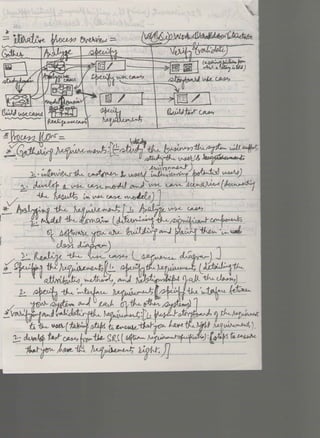 = iterative process overview =
Gather Analyze specify Verify (validate)
study business Analyze use cases specify use cases storyboard use cases
Build use cases model domain specify requirements Build test cases
Realize use cases
* Process flow =
* Gathering Requirements [1- study the business the system will support
study the users & environment
2- interview the customer & users (interviewing potential users)
3- develop a use case model and use case scenarios (documenting
the results in use case model)]
* Analyzing the requirements [1- Analyze use cases
2- model the domain (determining the significant components
of software you are building and placing them in
class diagram)
3- Realize the use cases (sequence diagram)]
* Specifying the requirements [1- specify the requirements (detailing the
attributes, methods, and relationships of all the classes)
2- specify the interface requirements (specify the interface between
your system and each of the other systems)]
* Verifying and validating the requirements [1- present storyboard of the requirements
to the users (taking steps to ensure that you have the right requirements).
2- develop test cases from the SRS (software requirement specification) (steps to ensure
that you have the requirements right)]